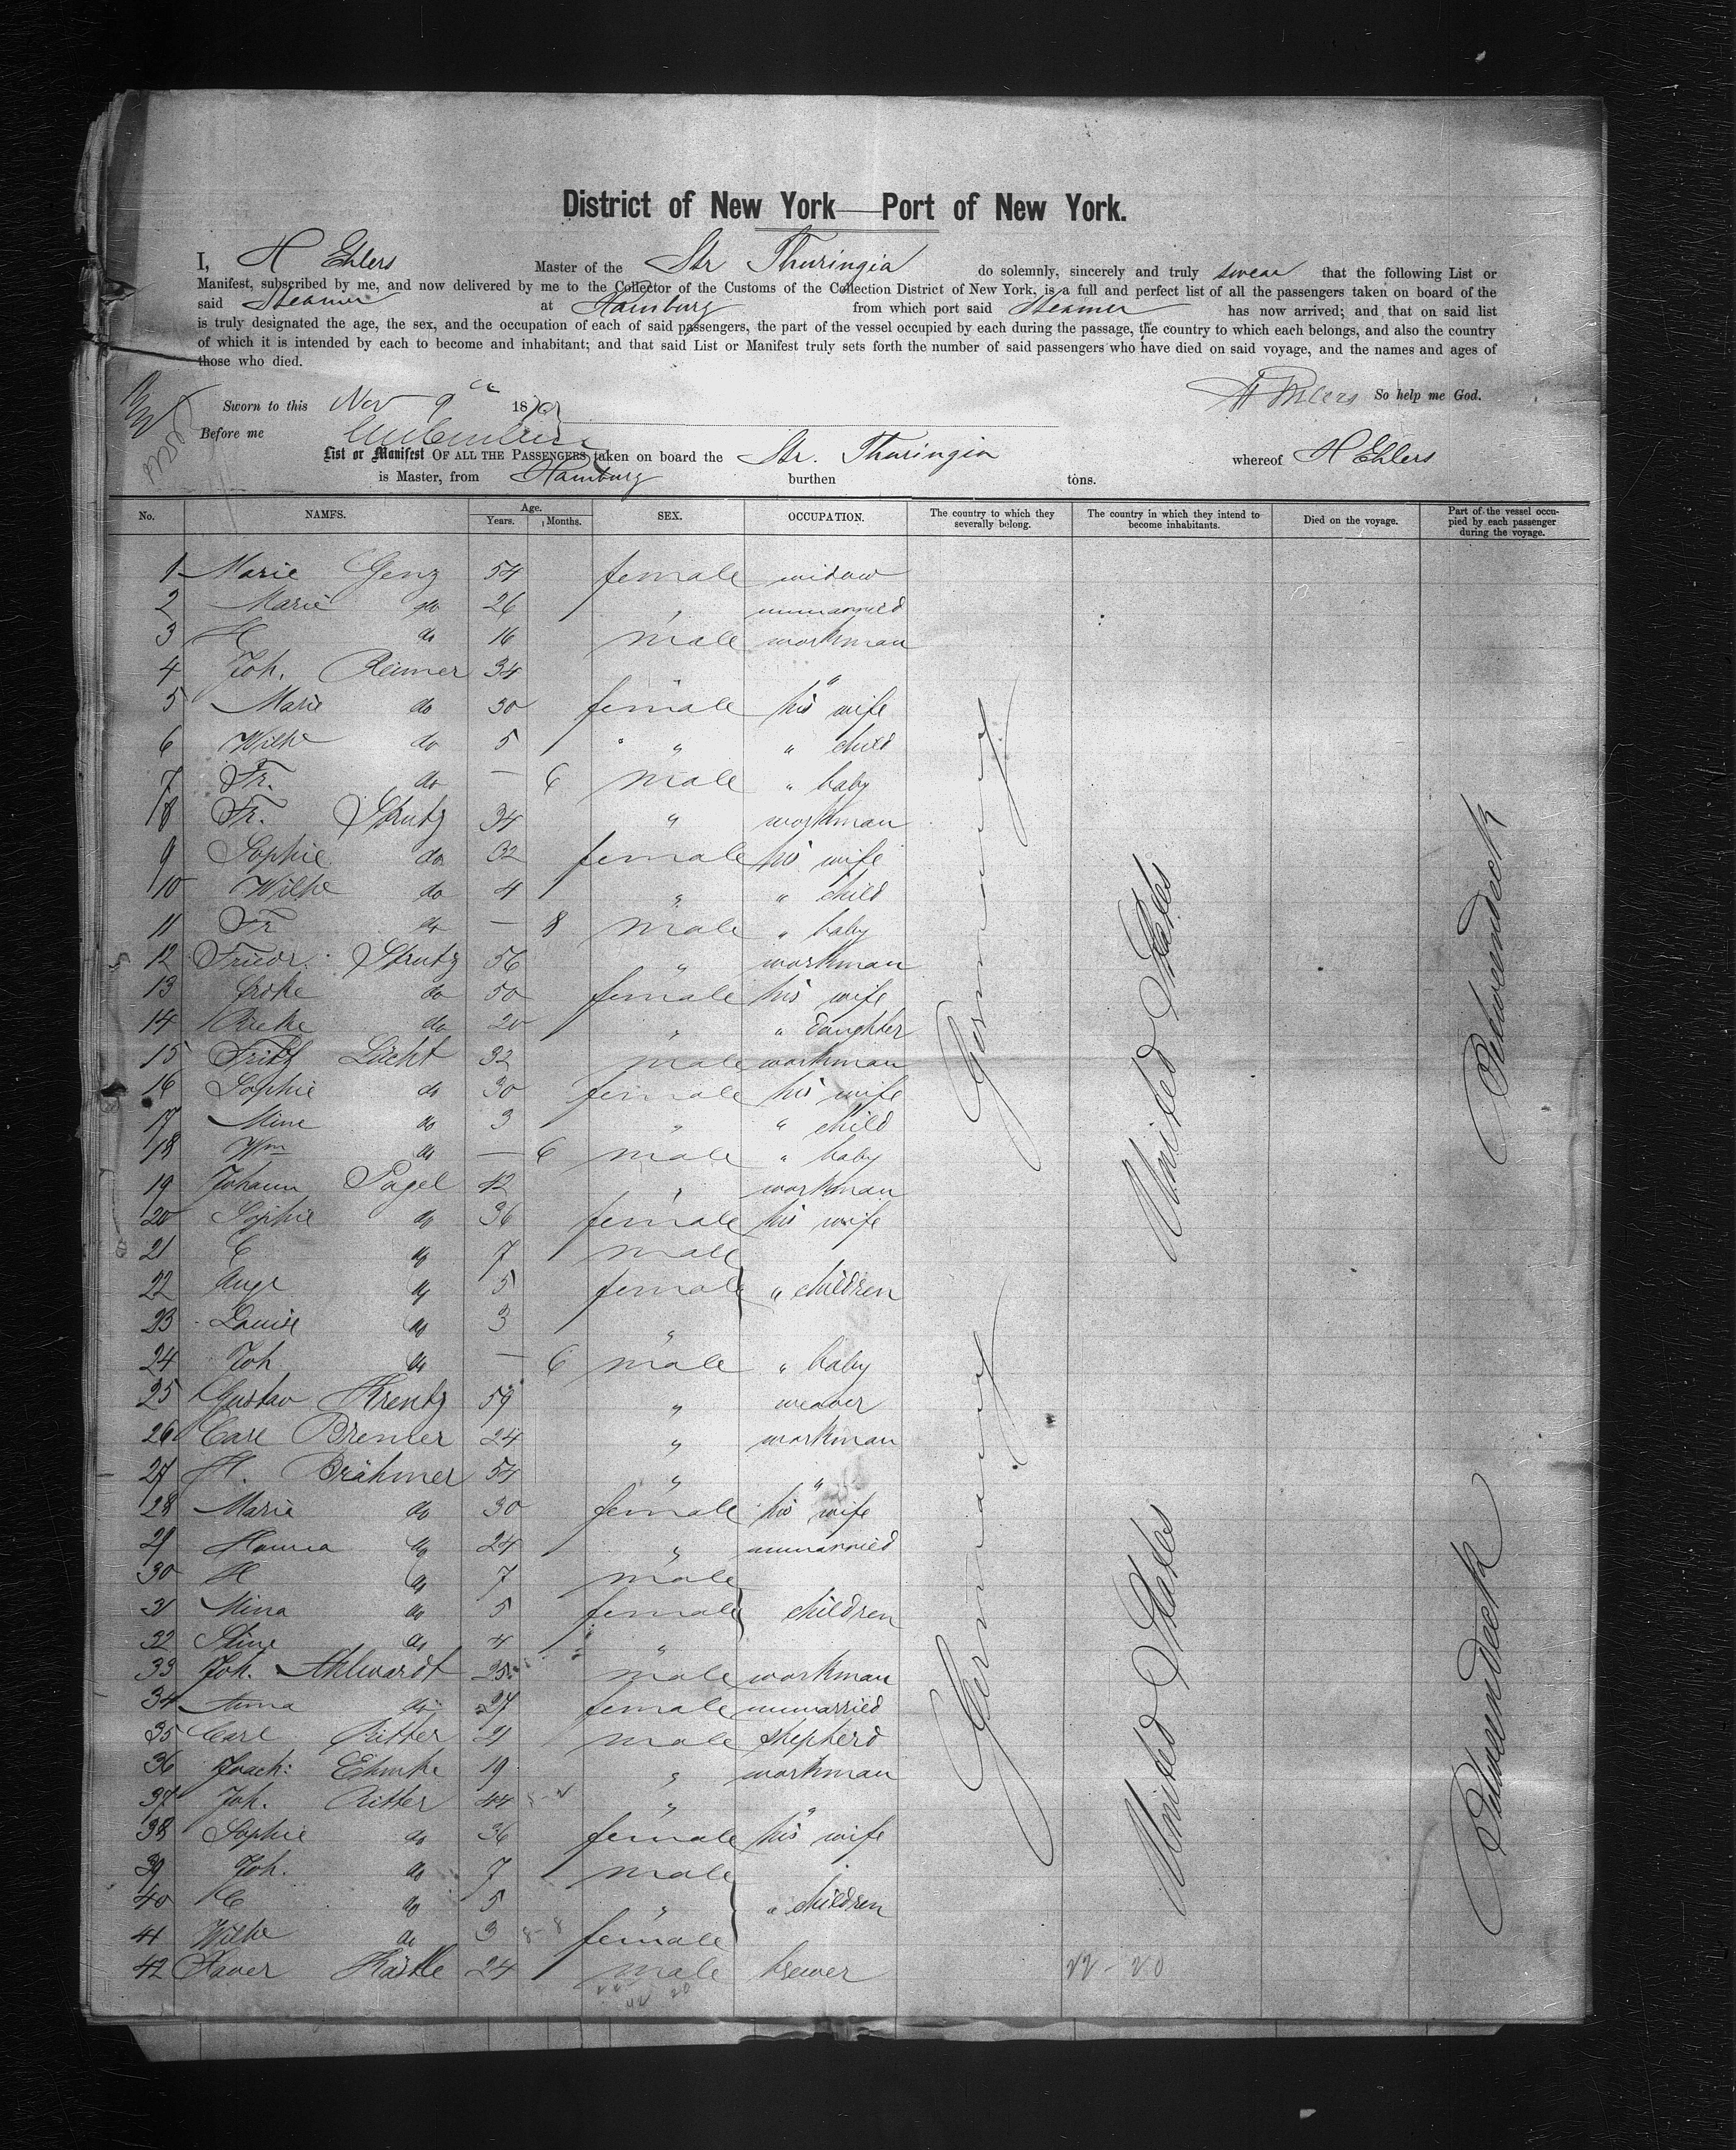 District of New York—Port of New York.
I, H Ehlers Master of the Str Thuringia do solemnly, sincerely and truly swear that the following List or
Manifest, subscribed by me, and now delivered by me to the Collector of the Customs of the Collection District of New York, is a full and perfect list of all the passengers taken on board of the
said Steamer at Hamburg from which port said Steamer has now arrived; and that on said list
is truly designated the age, the sex, and the occupation of each of said passengers, the part of the vessel occupied by each during the passage, the country to which each belongs, and also the country
of which it is intended by each to become and inhabitant; and that said List or Manifest truly sets forth the number of said passengers who have died on said voyage, and the names and ages of
those who died.
H Ehlers So help me God.
Sworn to this Nov 9 18
Before me
List or Manifest OF ALL THE PASSENGERS taken on board the Str. Thuringia whereof H Ehlers
is Master, from Hamburg burthen tons.
No. NAMES. Age. Years. Months. SEX. OCCUPATION. The country to which they severally belong. The country in which they intend to become inhabitants. Died on the voyage. Part of the vessel occupied by each passenger during the voyage.
1 Marie Genz 54 female widow
2 Marie do 26 " unmarried
3 H do 16 male workman
4 Joh. Reimer 34 " "
5 Marie do 30 female his wife
6 Wilhe do 5 " " " child
7 Fr. do — 6 male " baby
8 Fr. Strutz 34 " workman
9 Sophie do 32 female his wife
10 Wilhe do 4 " " child
11 Fr do — 8 male " baby
12 Friedr. Strutz 56 " workman
13 do 50 female his wife
14 Rieke do 20 " " daughter
15 Fritz Lücht 32 male workman
16 Sophie do 30 female his wife
17 Mine do 3 " " child
18 Wm do — 6 male " baby
19 Johann Pagel 42 " workman
20 Sophie do 36 female his wife
21 C do 7 male
22 Auge do 5 female " children
23 Louise do 3 "
24 Joh do — 6 male " baby
25 Gustav Krentz 59 " weaver
26 Carl Bremer 24 " workman
27 H. Brähmer 54 " "
28 Marie do 30 female his wife
29 Hanna do 24 " unmarried
30 H do 7 male
31 Mina do 5 female children
32 Stine do 4 "
33 Joh. Ahlwardt 25 male workman
34 Anna do 27 female unmarried
35 Carl Ritter 21 male shepherd
36 Joach: Ehmke 19 " workman
37 Joh. Ritter 44 " "
38 Sophie do 36 female his wife
39 Joh. do 7 male
40 C do 5 " " children
41 Wilhe do 3 8-8 female
42 Xaver Kästle 24 male brewer
Germany
United States
Zwischendeck
Germany
United States
Zwischendeck
22-20